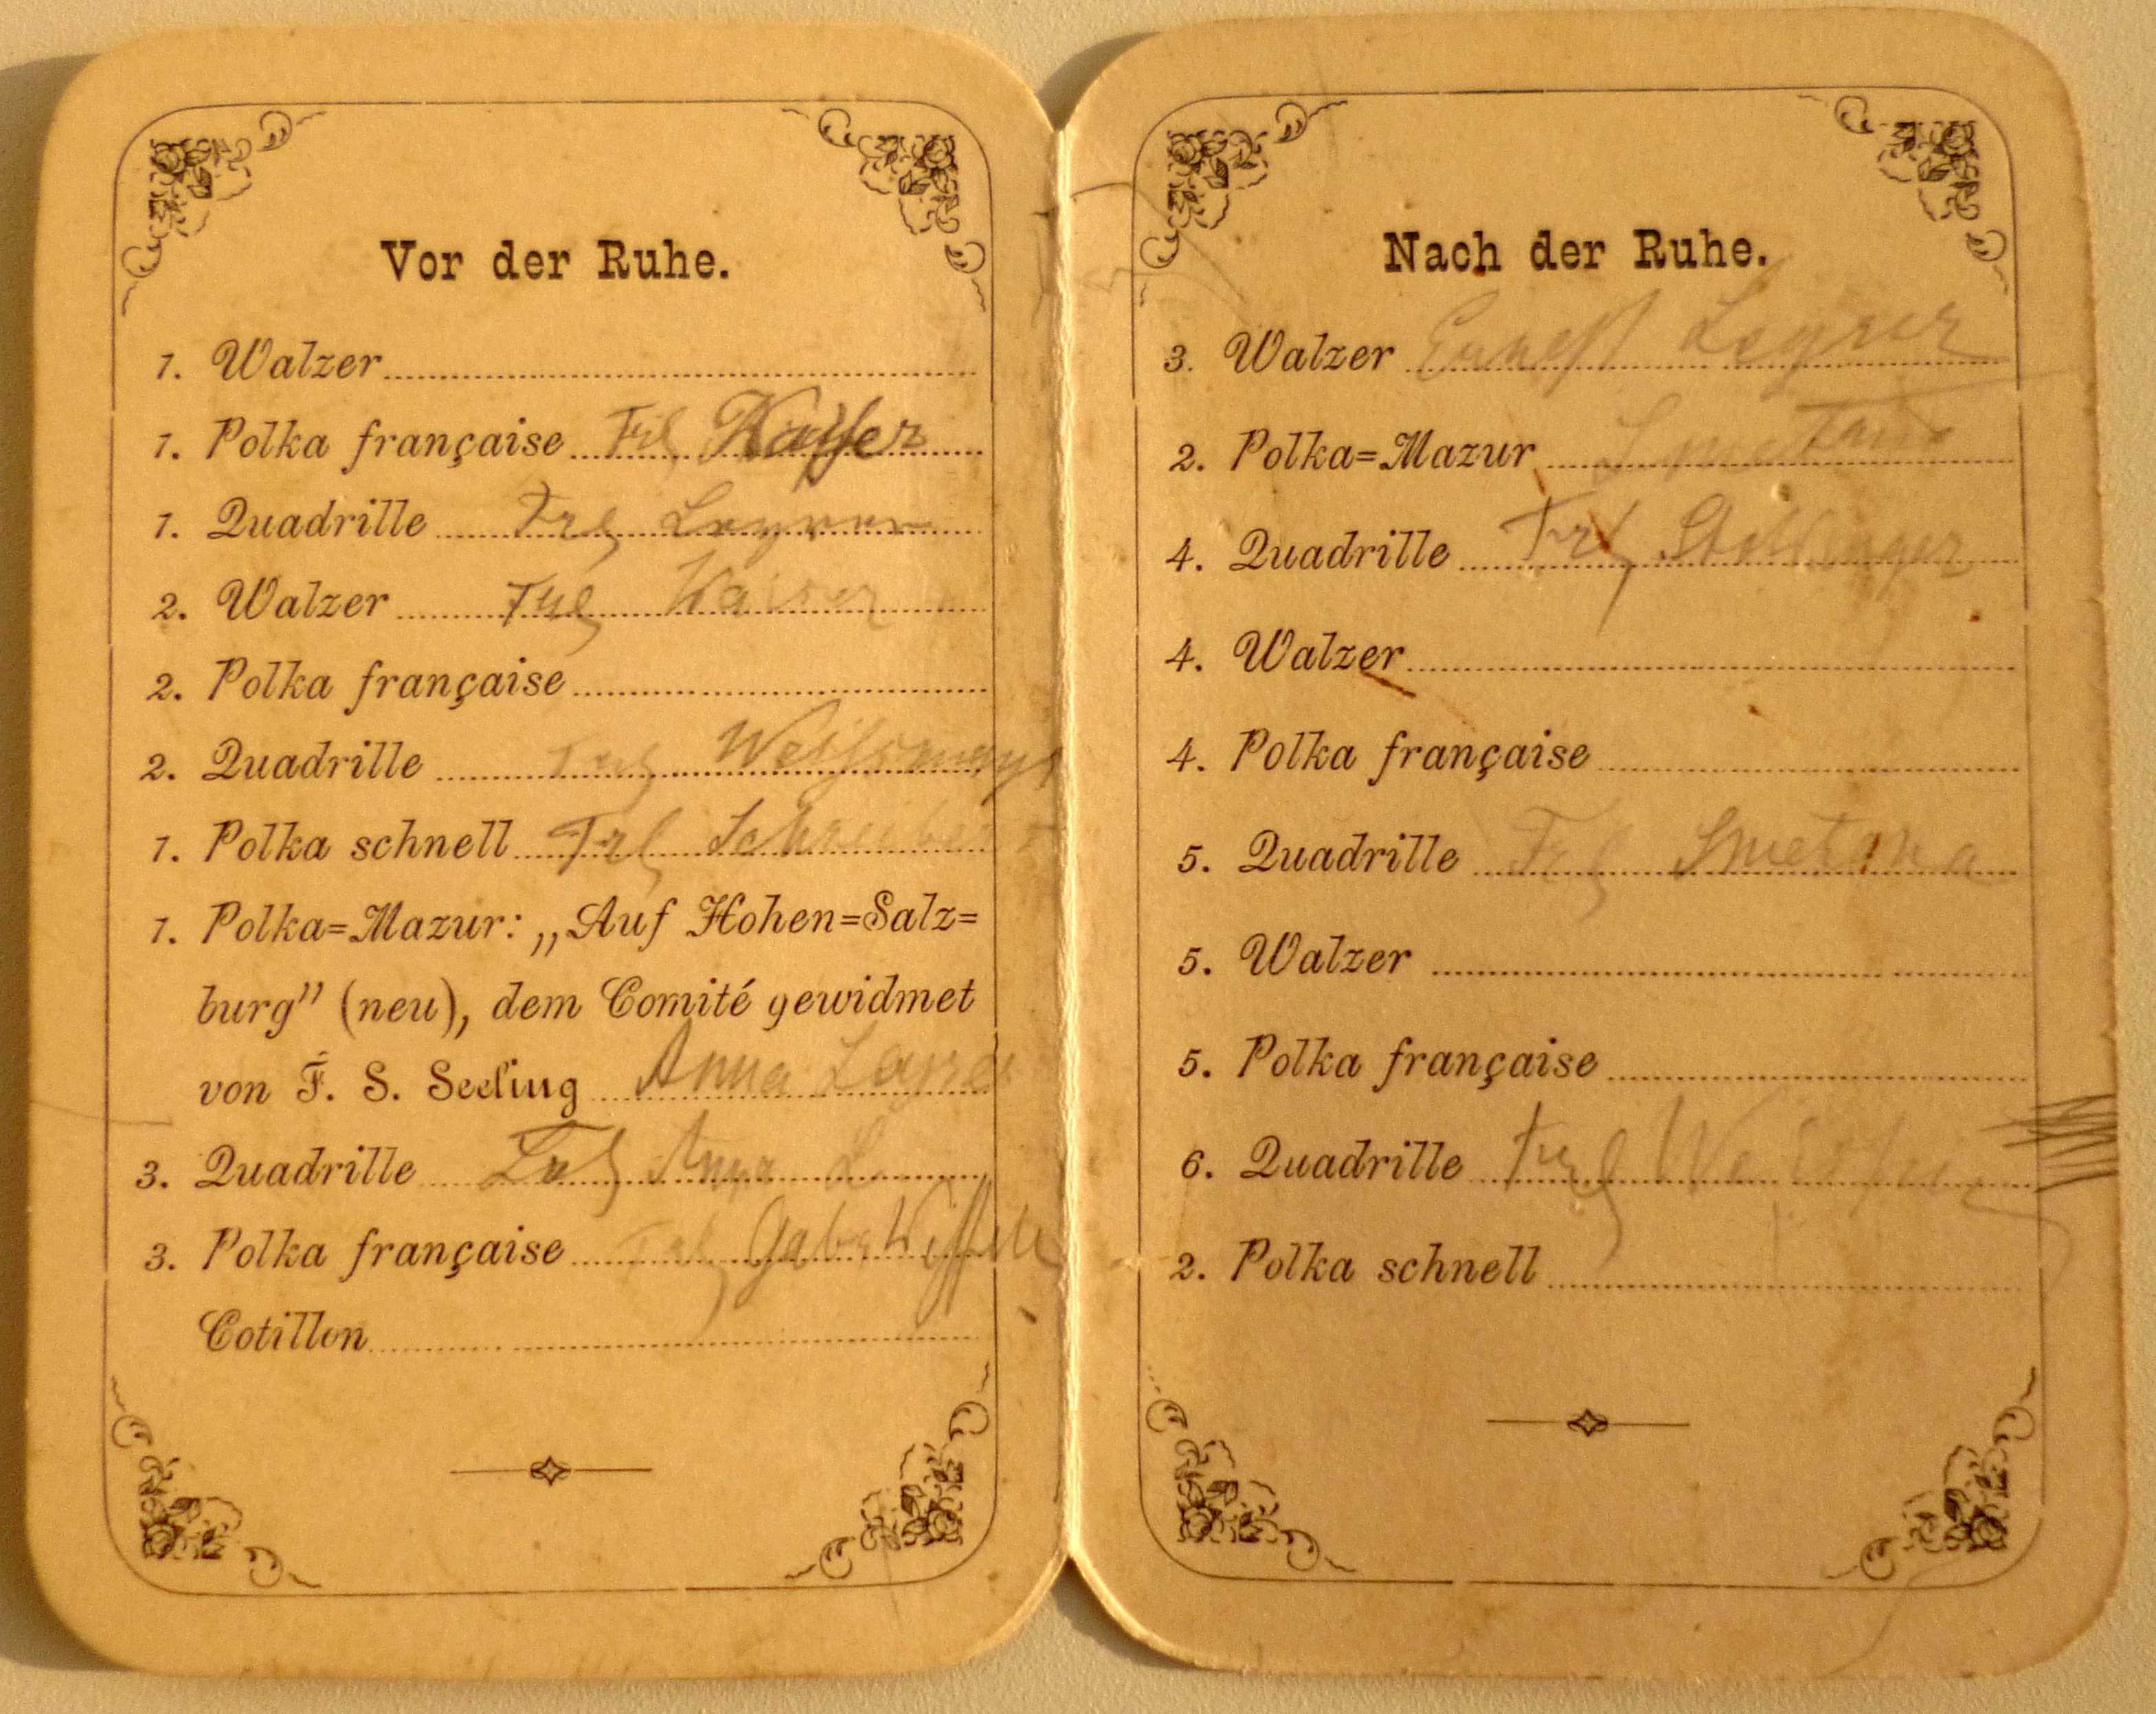 Vor der Ruhe.
1. Walzer
1. Polka française Frl Kaiser
1. Quadrille Frl
2. Walzer Frl Kaiser
2. Polka française
2. Quadrille Frl
1. Polka schnell Frl Schreiber
1. Polka=Mazur: „Auf Hohen=Salz=
burg” (neu), dem Comité gewidmet
von F. S. Seeling Anna
3. Quadrille Frl Anna L
3. Polka française Frl
Cotillon
Nach der Ruhe.
3. Walzer
2. Polka=Mazur Smetana
4. Quadrille Frl
4. Walzer
4. Polka française
5. Quadrille Frl Smetana
5. Walzer
5. Polka française
6. Quadrille Frl
2. Polka schnell